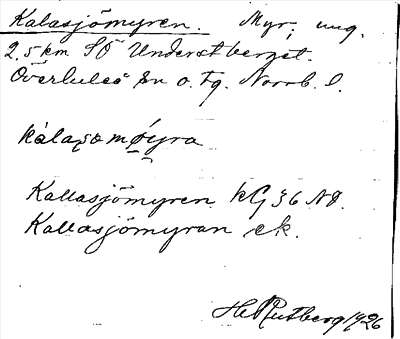 Kalasjömyren. Myr, ung.
2,5 km SÖ Understberget.
Överluleå sn o. tg. Norrb. l.
kàlaʂømǿyra
Kallasjömyren kG 36 NO.
Kallasjömyran ek.
H. Rutberg 1926